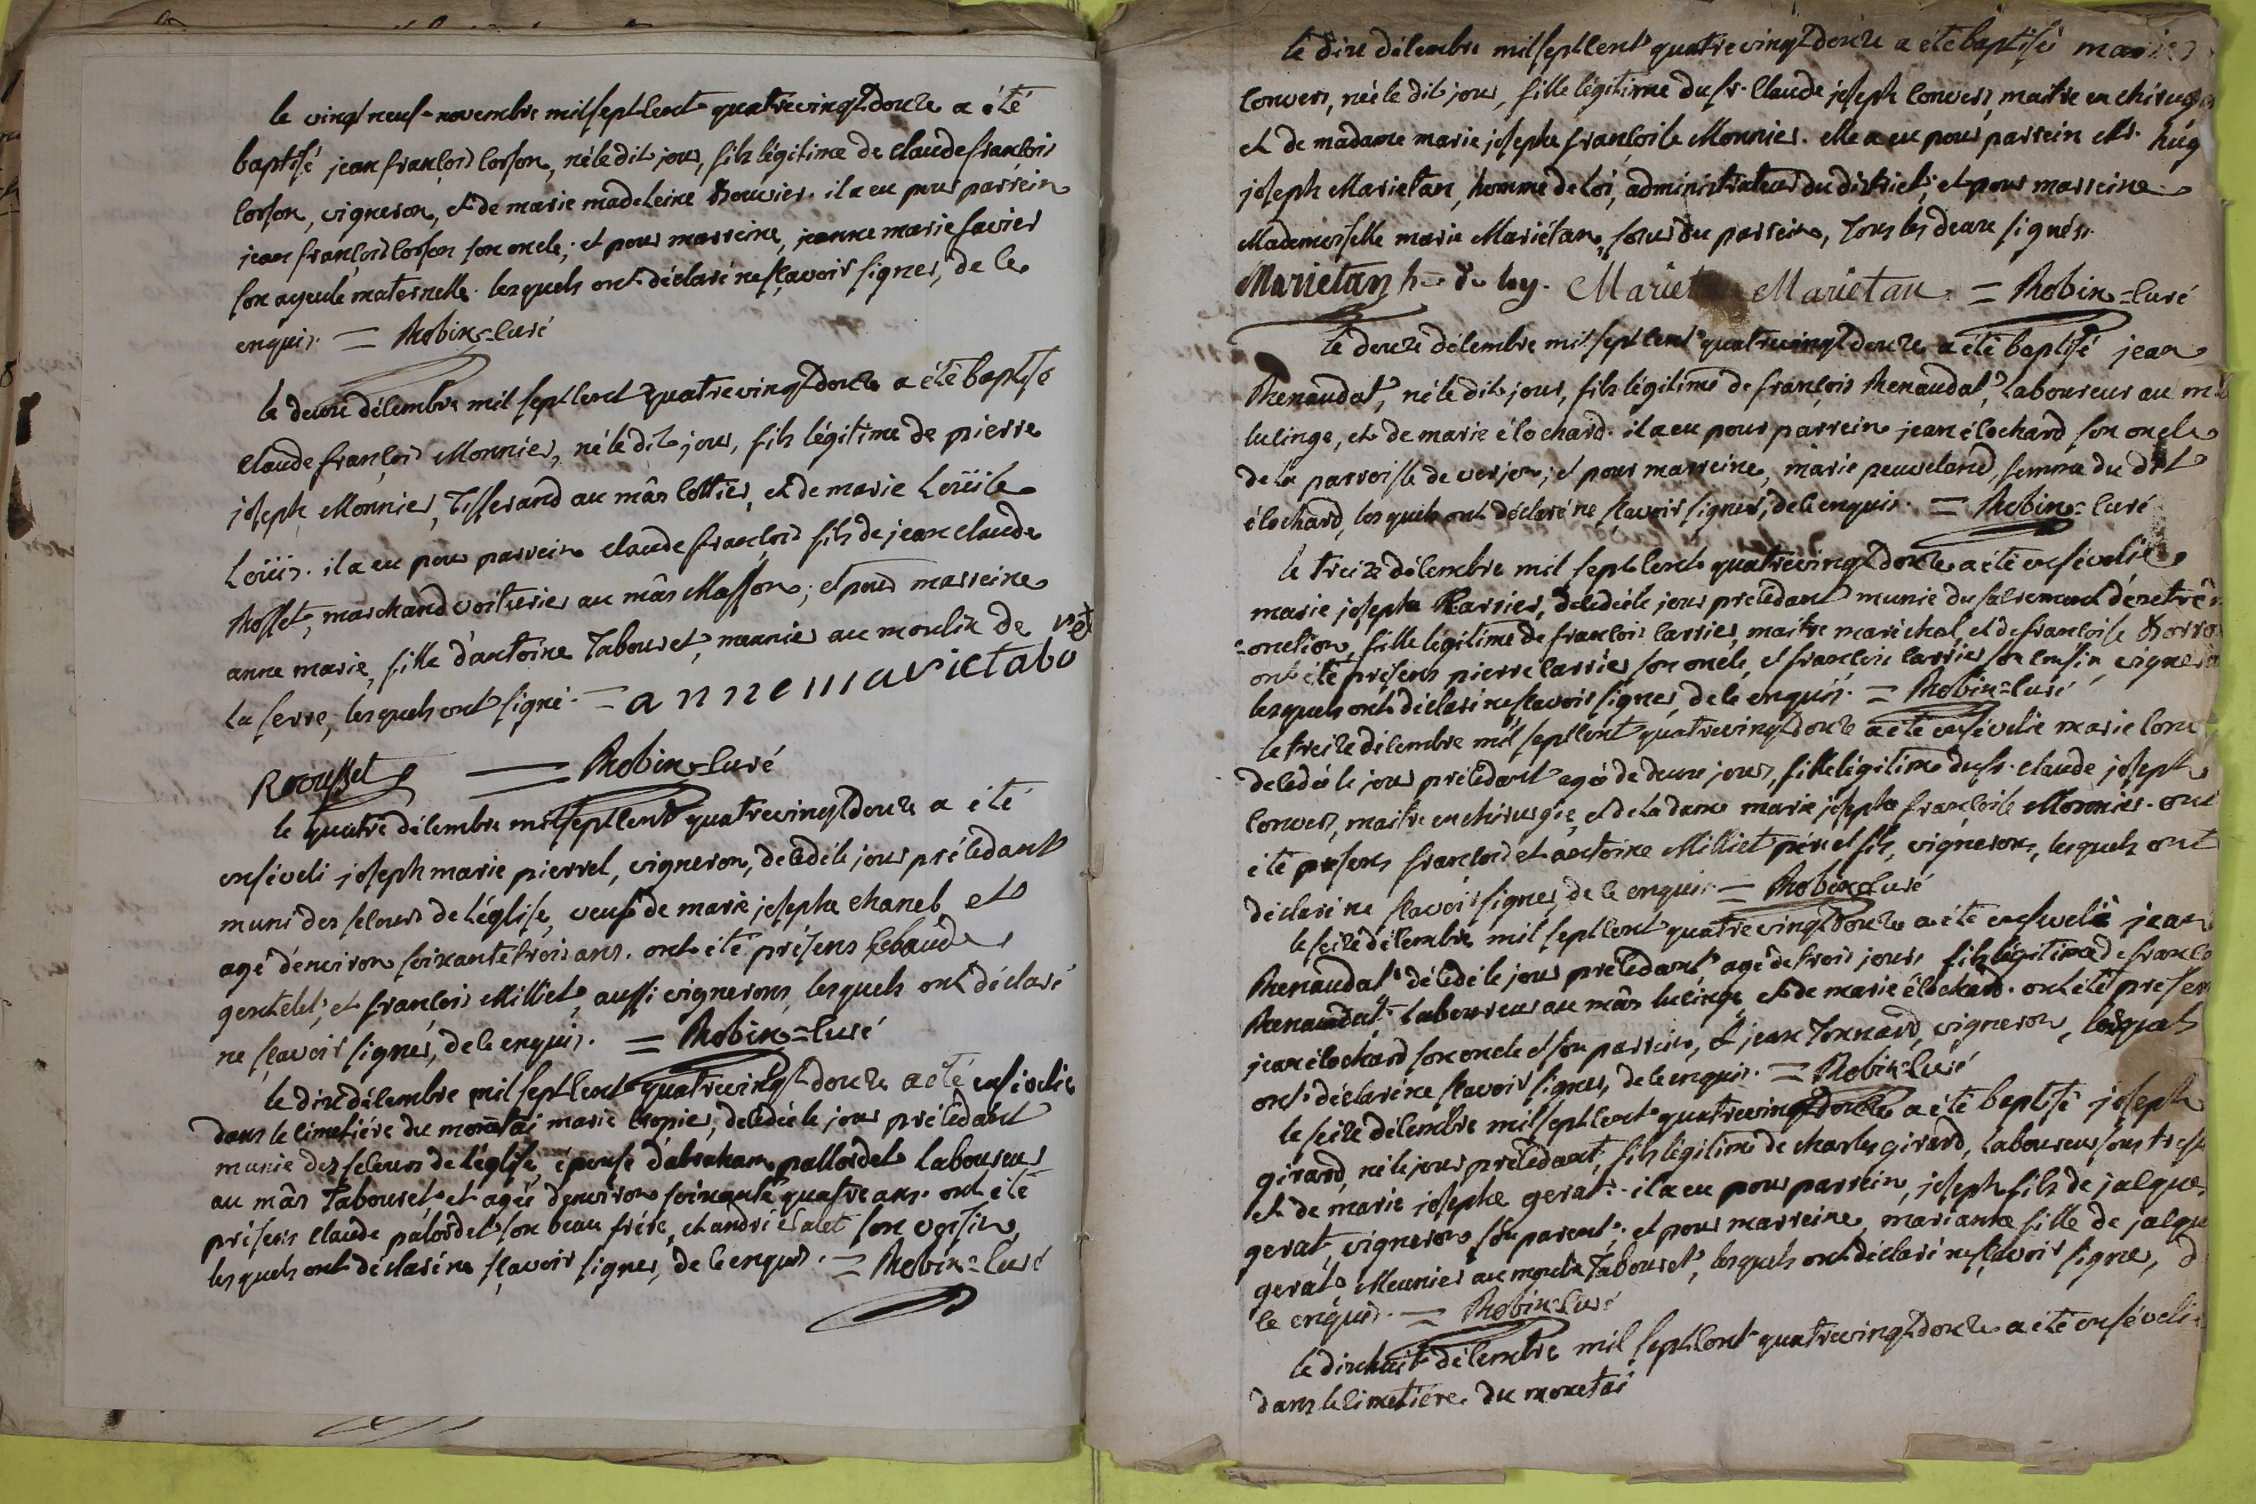 le vingt neuf novembre mil sept cent quatrevingt douze a été
baptisé jean françois corson, né le dit jour, fils légitime de claude françois
corson, vigneron, et de marie madeleine Bouvier. il a eu pour parrein
jean françois corson son oncle; et pour marreine, jeanne marie favier
son ayeule maternelle. lesquels ont déclaré ne sçavoir signer, de ce
enquis. = Robin = curé
le deux décembre mil sept cent quatrevingt douze a été baptisé
claude françois Monnier, né le dit jour, fils légitime de pierre
joseph Monnier, Tisserand au mâs cottier, et de marie Loüise
Loüis. il a eu pour parrein claude françois fils de jean claude
Rosset, marchand voiturier au mâs Masson; et pour marreine
anne marie, fille d'antoine Tabouret, meunier au moulin de
la serre, lesquels ont signé. = anne marie tabo
ret
Roousset = Robin = curé
le quatre décembre mil sept cent quatrevingt douze a été
enséveli joseph marie pierrel, vigneron, décédé le jour précédant
muni des secours de l'église, veuf de marie josephe chanel et
agé d'environ soixante trois ans. ont été présens
gentelet, et françois Milliet, aussi vignerons, lesquels ont déclaré
ne sçavoir signer, de ce enquis. = Robin = curé
le dix décembre mil sept cent quatrevingt douze a été ensévelie
dans le cimetiére du monetai marie cropier, décédée le jour précédant
munie des secours de l'église, épouse d'abraham pallordet laboureur
au mâs Tabouret, et agée d'environ soixante quatre ans. ont été
présens claude palordet son beau frére, et andré calet son voisin,
lesquels ont déclaré ne sçavoir signer, de ce enquis. = Robin = curé
le dix décembre mil sept cent quatrevingt douze a été baptisé marie
convers, née le dit jour, fille légitime du sr. claude joseph convers, maitre en chirurgie
et de madame marie josephe françoise Monnier. elle a eu pour parrein Mr. hug
joseph Marietan, homme de loi, administrateur du district; et pour marreine
Mademoiselle marie Mariétan, sœur du parrein, Tous les deux signés.
Marietan h. de loy. Mariet Marietan. = Robin = curé
le douze décembre mil sept cent quatrevingt douze a été baptisé jean
Renaudat, né le dit jour, fils légitime de françois Renaudat, laboureur au m
lucinge, et de marie élochard. il a eu pour parrein jean élochard son oncle
de la parroisse de verjon; et pour marreine, marie peuveland, femme du dit
élochard, lesquels ont déclaré ne sçavoir signer, de ce enquis. = Robin = curé
le treize décembre mil sept cent quatrevingt douze a été ensévelie
marie josephe Carrier, décédée le jour précédant munie du sacrement d'éxetrême
onction, fille légitime de françois carrier, maitre maréchal, et de françoise Borro
ont été présens pierre carrier son oncle, et françois carrier son cousin, vignerons
lesquels ont déclaré ne sçavoir signer, de ce enquis. = Robin = curé
le treize décembre mil sept cent quatrevingt douze a été ensévelie marie conv
décédée le jour précédant agée de deux jours, fille légitime du sr. claude joseph
convers, maitre en chirurgie, et de la dame marie josephe françoise Monnier. ont
été présens françois et antoine Milliet pére et fils, vignerons, lesquels ont
déclaré ne sçavoir signer, de ce enquis. = Robin = curé
le seize décembre mil sept cent quatrevingt douze a été enséveli jean
Renaudat décédé le jour précédant agé de trois jours fils légitime de franço
Renaudat, laboureur au mâs lucinge, et de marie élochard. ont été présens
jean élochard son oncle et son parrein, et jean Tonnard, vigneron, lesquels
ont déclaré ne sçavoir signer, de ce enquis. = Robin = curé
le seize décembre mil sept cent quatrevingt douze a été baptisé joseph
girard, né le jour précédant, fils légitime de charles girard, laboureur sous
et de marie josephe gerat. il a eu pour parrein, joseph fils de jacques
gerat, vigneron son parent; et pour marreine, marianne fille de jacque
gerat, Meunier au moulin Tabouret, lesquels ont déclaré ne sçavoir signer, d
ce enquis. = Robin = curé
le dixhuit décembre mil sept cent quatrevingt douze a été enséveli
dans le cimetiére du monetai